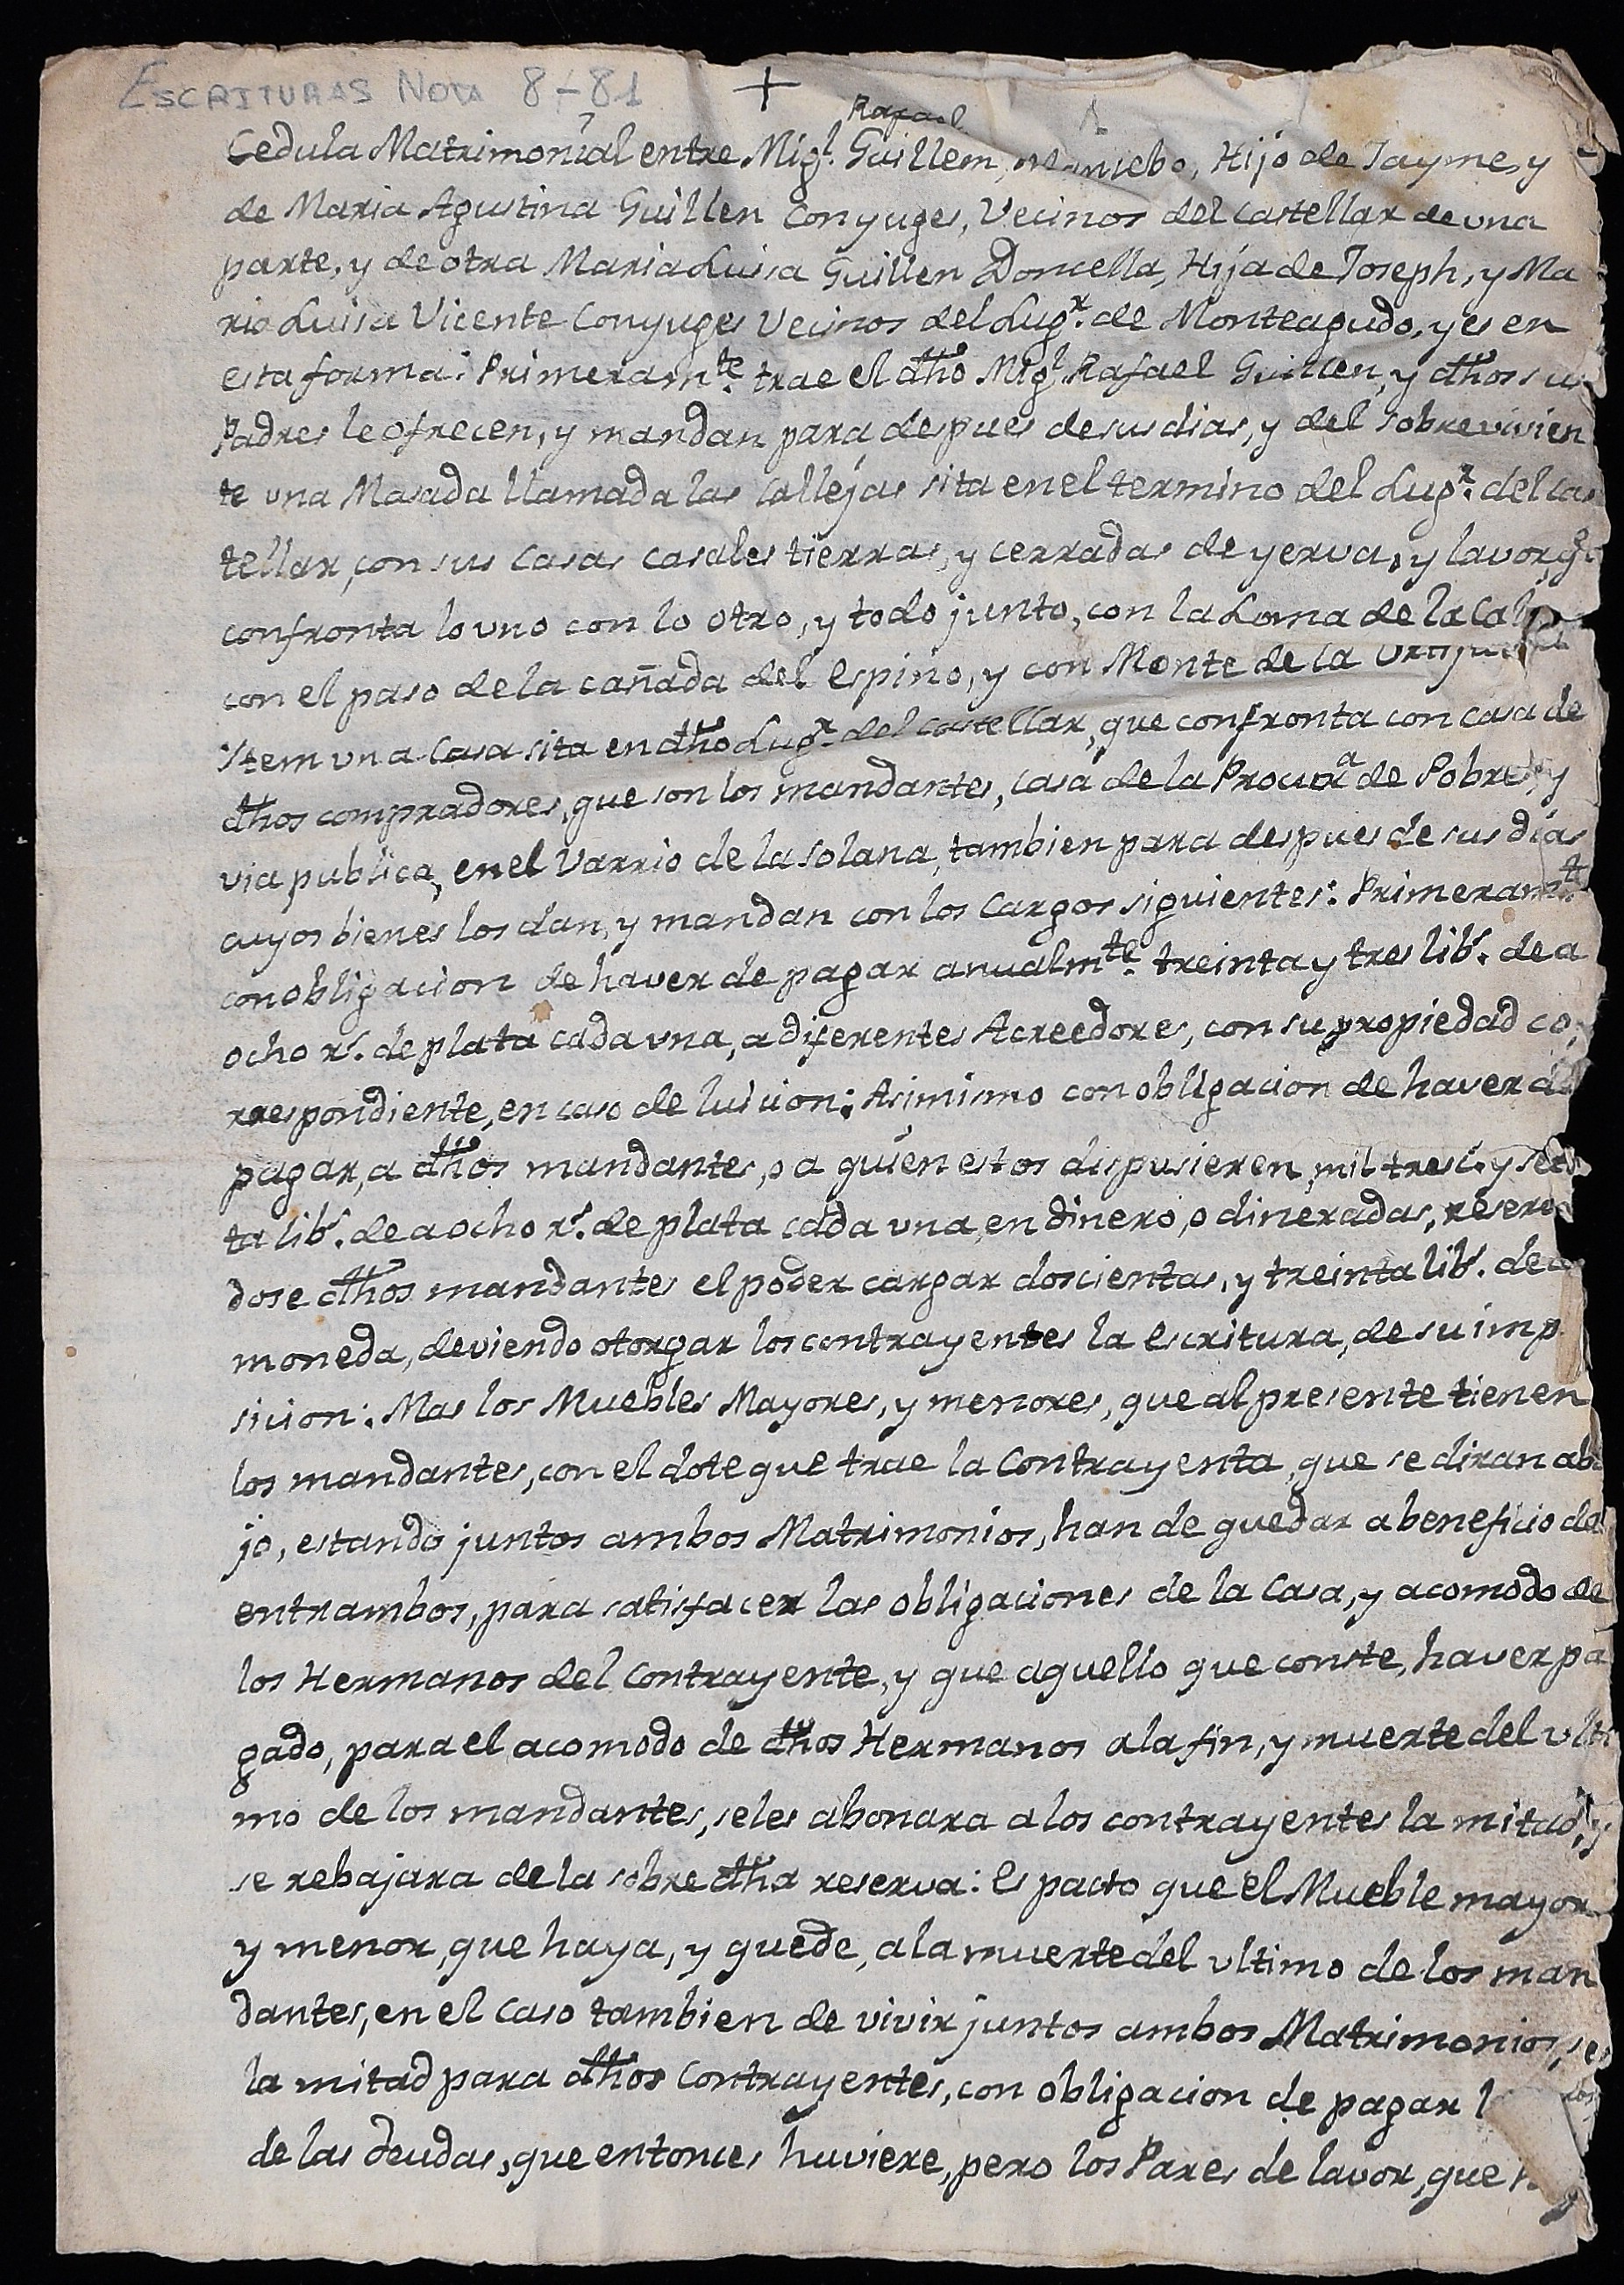 ESCRITURAS Nota 8-81
+
Rafael
Cedula Matrimonial entre Migl. Guillem, Mancebo, Hijo de Jayme, y
de Maria Agustina Guillen Conyuges, Vecinos del Castellar de una
parte, y de otra Maria Luisa Guillen Doncella, Hija de Joseph, y Ma
ria Luisa Vicente Conyuges Vecinos del Lugr. de Monteagudo, y es en
esta forma: Primeramte. trae el dho Migl. Rafael Guillen, y dhos sus
Padres le ofrecen, y mandan para despues de sus dias, y del sobrevivien
te una Masada llamada las Callejas sita en el termino del Lugr. del Cas
tellar, con sus Casas casales tierras, y cerradas de yerva, y lavor, q
confronta lo uno con lo otro, y todo junto, con la Loma de la
con el paso de la cañada del Espino, y con Monte de la
Ytem una Casa sita en dho Lugr. del Castellar, que confronta con casa de
dhos compradores, que son los mandantes, casa de la Procura de Pobres, y
via publica, en el Varrio de la Solana, tambien para despues de sus dias
cuyos bienes los dan, y mandan con los Cargos siguientes: Primeramte.
con obligacion de haver de pagar anualmte. treinta y tres libs. de a
ocho rs. de plata cada una, a diferentes Acreedores, con su propiedad co
rrespondiente, en caso de luicion: Asimismo con obligacion de haver de
pagar, a dhos mandantes, o a quien estos dispusieren, mil tresc. y
ta libs. de a ocho rs. de plata cada una, en dinero, o dineradas,
dose dhos mandantes el poder cargar doscientas, y treinta libs. de
moneda, deviendo otorgar los contrayentes la escritura, de su imp
sicion: Mas los Muebles Mayores, y menores, que al presente tienen
los mandantes, con el dote que trae la Contrayenta, que se diran aba
jo, estando juntos ambos Matrimonios, han de quedar a beneficio de
entrambos, para satisfacer las obligaciones de la Casa, y acomodo de
los Hermanos del Contrayente, y que aquello que conste, haver pa
gado, para el acomodo de dhos Hermanos a la fin, y muerte del ulti
mo de los mandantes, se les abonara a los contrayentes la mitad, y
se rebajara de la sobre dha reserva: Es pacto que el Mueble mayor
y menor, que haya, y quede, a la muerte del ultimo de los man
dantes, en el caso tambien de vivir juntos ambos Matrimonios,
la mitad para dhos Contrayentes, con obligacion de pagar
de las deudas, que entonces huviere, pero los Pares de lavor, que